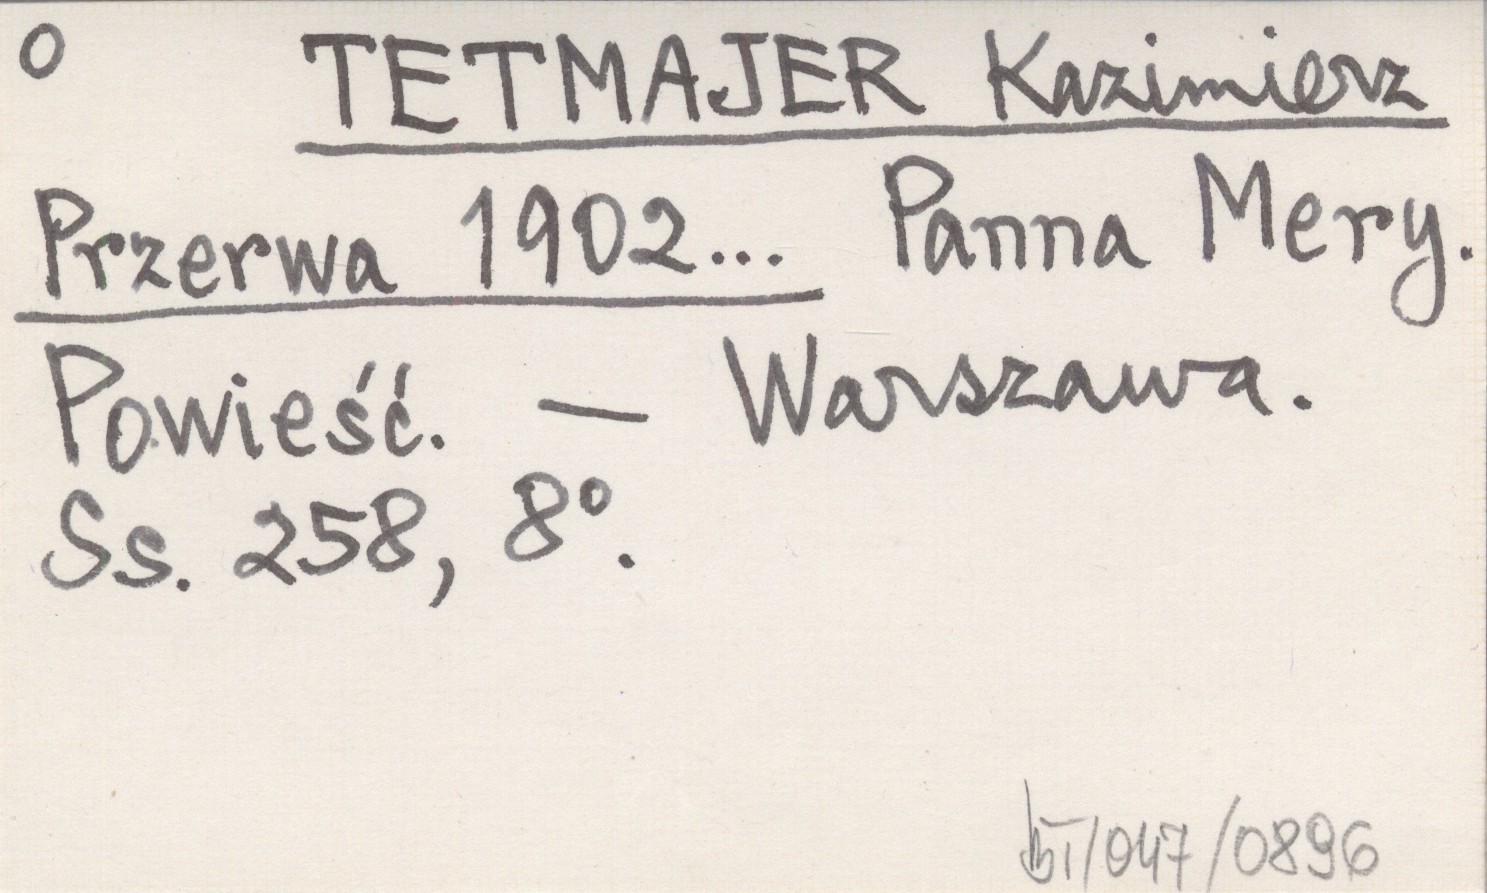 O TETMAJER Kazimierz
Przerwa 1902... Panna Mery.
Powieść. — Warszawa.
Ss. 258, 8º.
/047/0896